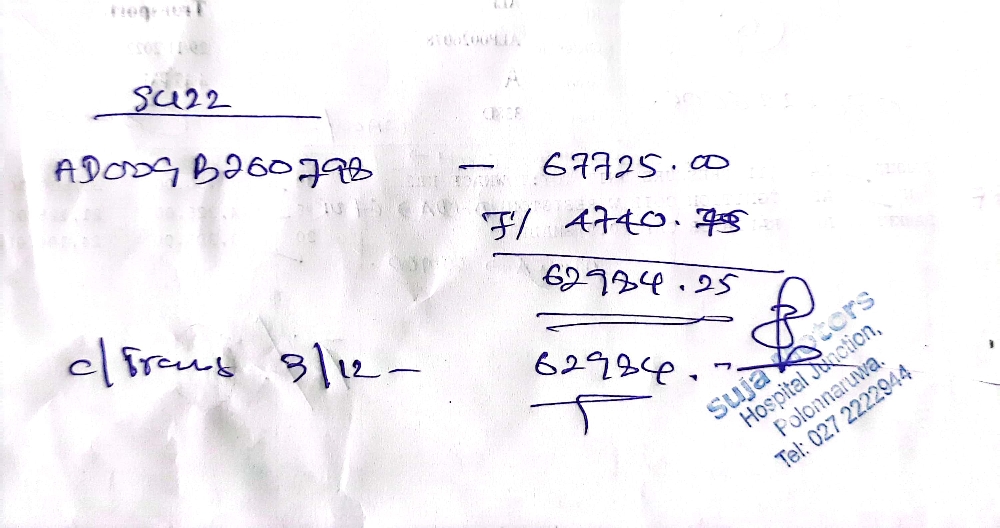 SU22
AD009B260798 - 67725.00
7% 4740.75
62984.25
c/Trans 3/12 - 62984.-
Suja Motors
Hospital Junction,
Polonnaruwa.
Tel: 027 2222944